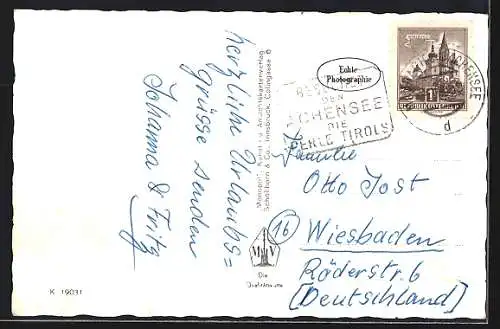 herzliche Urlaubs=
grüsse senden
Johanna & Fritz
Echte
Photographie
DEN
ACHENSEE
DIE
PERLE TIROLS
ACHENSEE
d
1
REPUBLIK
Familie
Otto Jost
(16) Wiesbaden
Röderstr. 6
(Deutschland)
"Monopol", Kunst- u. Ansichtskartenverlag
Schöllhorn & Co., Innsbruck, Collingasse 6
M V
Die
Qualitätskarte
K 19031